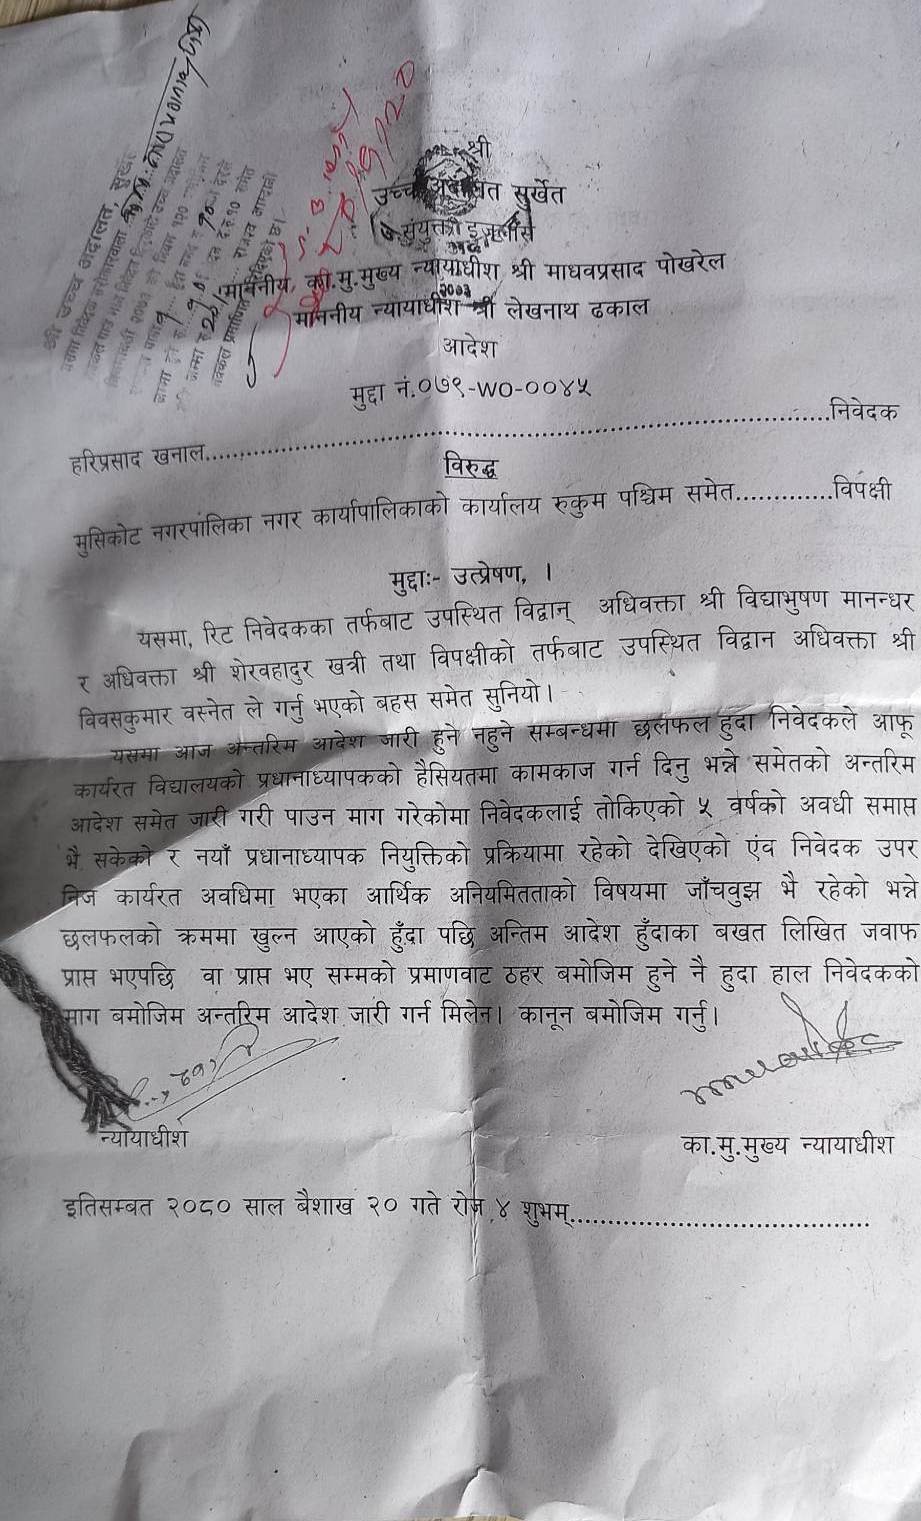 श्री
उच्च अदालत सुर्खेत
संयुक्त इजलास
माननीय का.मु.मुख्य न्यायाधीश श्री माधवप्रसाद पोखरेल
माननीय न्यायाधीश श्री लेखनाथ ढकाल
२००३
आदेश
मुद्दा नं.०७९-WO-००४५
हरिप्रसाद खनाल........................निवेदक
विरुद्ध
मुसिकोट नगरपालिका नगर कार्यापालिकाको कार्यालय रुकुम पश्चिम समेत.............विपक्षी
मुद्दाः- उत्प्रेषण, ।
यसमा, रिट निवेदकका तर्फबाट उपस्थित विद्वान् अधिवक्ता श्री विद्याभुषण मानन्धर
र अधिवक्ता श्री शेरवहादुर खत्री तथा विपक्षीको तर्फबाट उपस्थित विद्वान अधिवक्ता श्री
विवसकुमार वस्नेत ले गर्नु भएको बहस समेत सुनियो।
यसमा आज अन्तरिम आदेश जारी हुने नहुने सम्बन्धमा छलफल हुंदा निवेदकले आफू
कार्यरत विद्यालयको प्रधानाध्यापकको हैसियतमा कामकाज गर्न दिनु भन्ने समेतको अन्तरिम
आदेश समेत जारी गरी पाउन माग गरेकोमा निवेदकलाई तोकिएको ५ वर्षको अवधी समाप्त
भै सकेको र नयाँ प्रधानाध्यापक नियुक्तिको प्रक्रियामा रहेको देखिएको एंव निवेदक उपर
निज कार्यरत अवधिमा भएका आर्थिक अनियमितताको विषयमा जाँचवुझ भै रहेको भन्ने
छलफलको क्रममा खुल्न आएको हुँदा पछि अन्तिम आदेश हुँदाका बखत लिखित जवाफ
प्राप्त भएपछि वा प्राप्त भए सम्मको प्रमाणवाट ठहर बमोजिम हुने नै हुदा हाल निवेदकको
माग बमोजिम अन्तरिम आदेश जारी गर्न मिलेन। कानून बमोजिम गर्नु।
न्यायाधीश
का.मु.मुख्य न्यायाधीश
इतिसम्बत २०८० साल बैशाख २० गते रोज ४ शुभम्........................